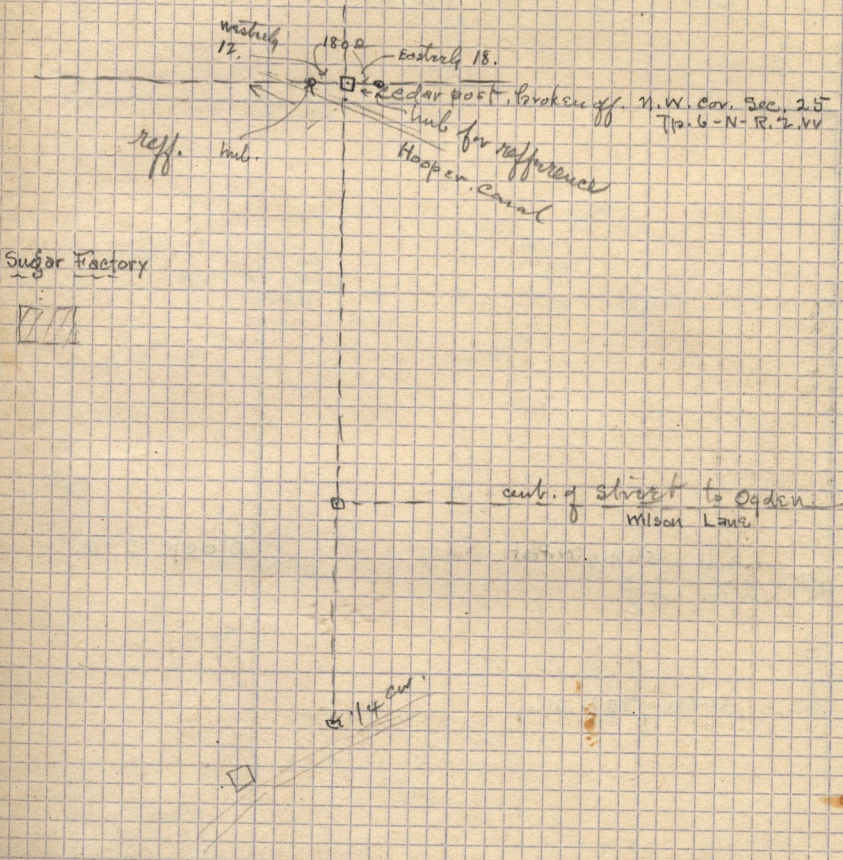 Westerly
12.
180°
Easterly 18.
Cedar post, broken off. N.W. cor. Sec. 25
Tp. 6-N-R.2.W
hub for refference
reff. hub.
Hooper Canal
Sugar Factory
cent. of street to Ogden
Wilson Lane
1/4 cor.